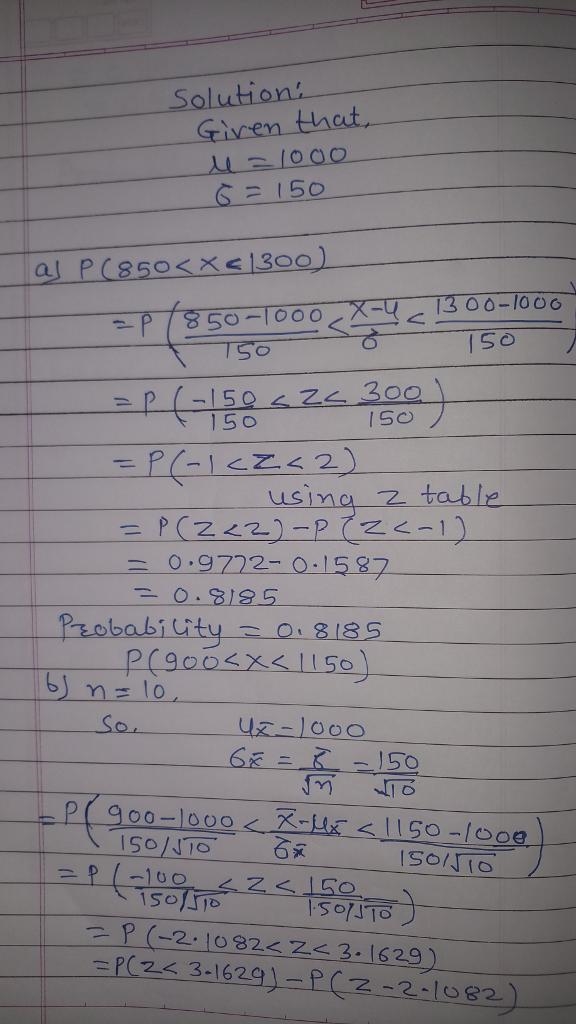 Solution:
Given that,
μ = 1000
σ = 150
a) P(850<x<1300)
= P (850-1000/150 < x-μ/σ < 1300-1000/150)
= P (-150/150 < Z < 300/150)
= P(-1<Z<2)
using z table
= P(Z<2)-P(Z<-1)
= 0.9772-0.1587
= 0.8185
Probability = 0.8185
P(900<x<1150)
b) n=10,
So, μx̄=1000
σx̄ = σ/√n = 150/√10
= P(900-1000/150/√10 < x̄-μx̄/σx̄ < 1150-1000/150/√10)
= P(-100/150/√10 < Z < 150/150/√10)
= P(-2.1082<Z<3.1629)
=P(Z<3.1629)-P(Z-2.1082)